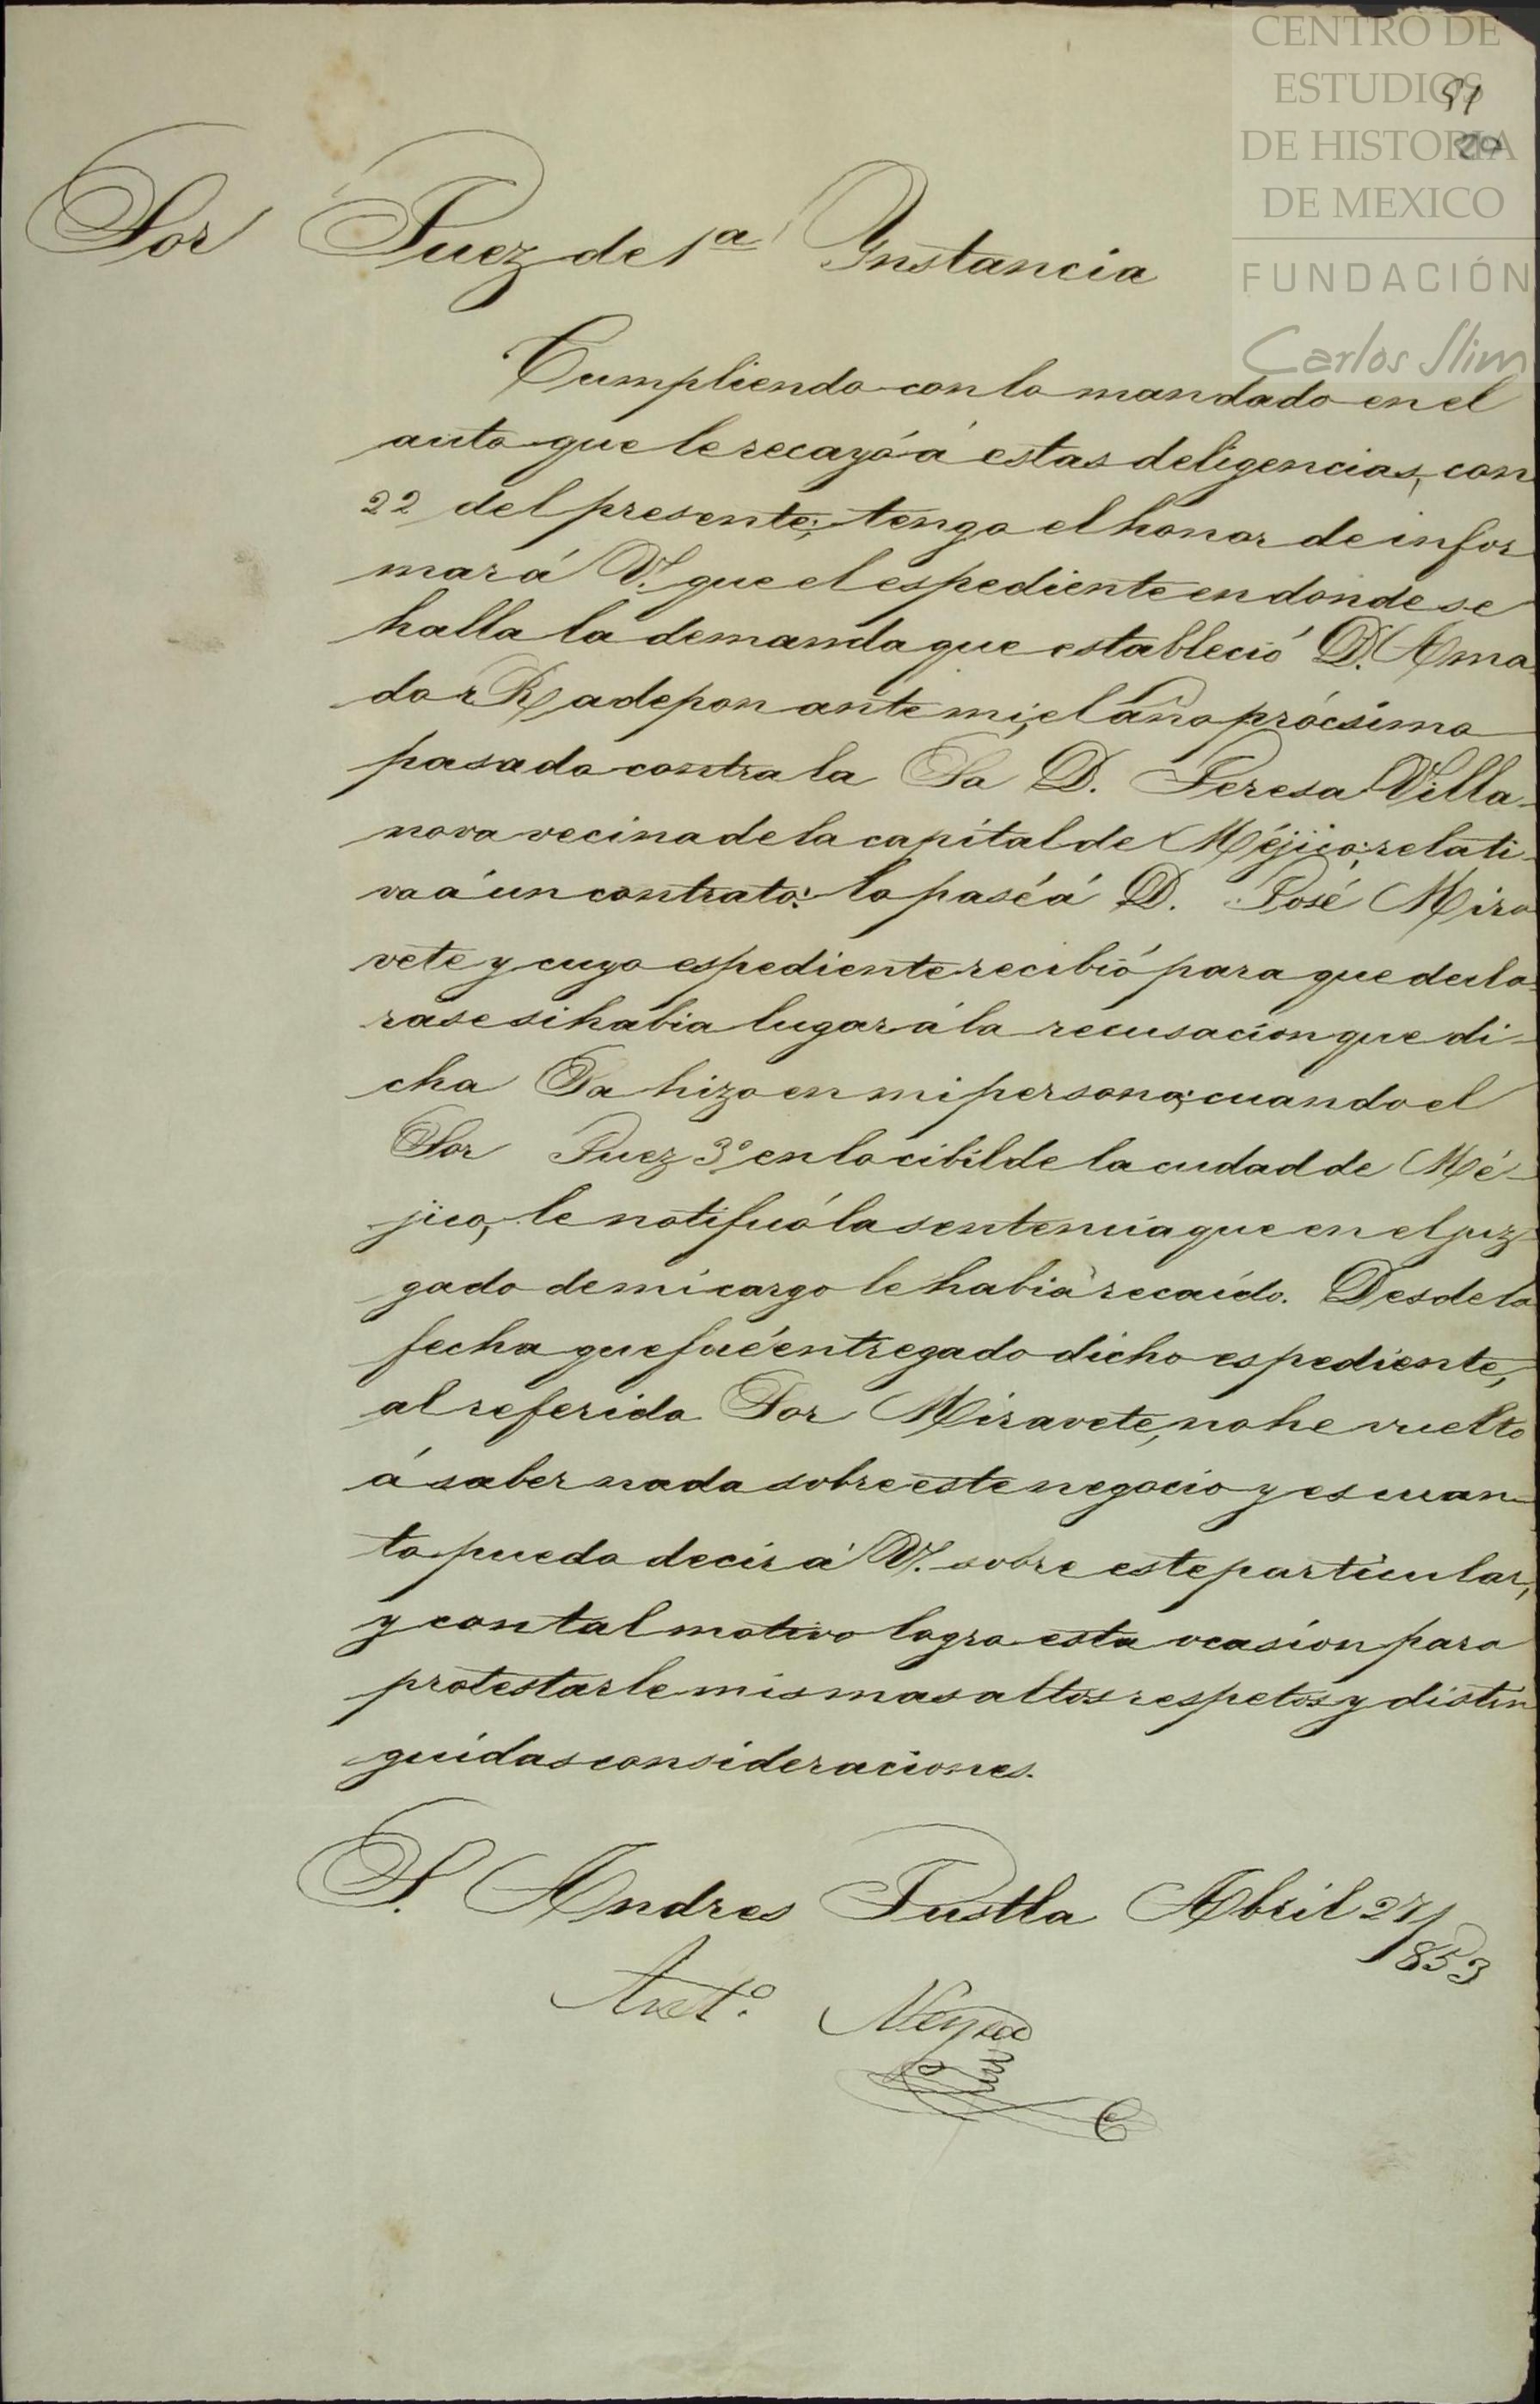 CENTRO DE
ESTUDIOS
DE HISTORIA
DE MEXICO
FUNDACIÓN
Carlos Slim
91
20
Sor Juez de 1a Instancia
Cumpliendo con lo mandado en el
auto que le recayó á estas deligencias, con
22 del presente; tengo el honor de infor
mar á V. que el espediente en donde se
halla la demanda que estableció D. Ama
dor Radepon ante mi, el año prócsimo
pasado contra la Sa D. Teresa Villa-
nova vecina de la capital de Méjico; relati-
va á un contrato: lo pasé á D. José Mira
vete y cuyo espediente recibió para que decla-
rase si habia lugar á la recusacion que di-
cha Sa hizo en mi persona; cuando el
Sor Juez 3º en lo cibil de la cudad de Mé-
jico, le notificó la sentencia que en el juz-
gado de mi cargo le habia recaído. Desde la
fecha que fué entregado dicho espediente,
al referido Sor Miravete, no he vuelto
á saber nada sobre este negocio y es cuan-
to puedo decir á V. sobre este particular,
y con tal motivo logro esta ocasion para
protestarle mis mas altos respetos y distin
guidas consideraciones.
S. Andres Tustla Abril 27/
1853
Anto.